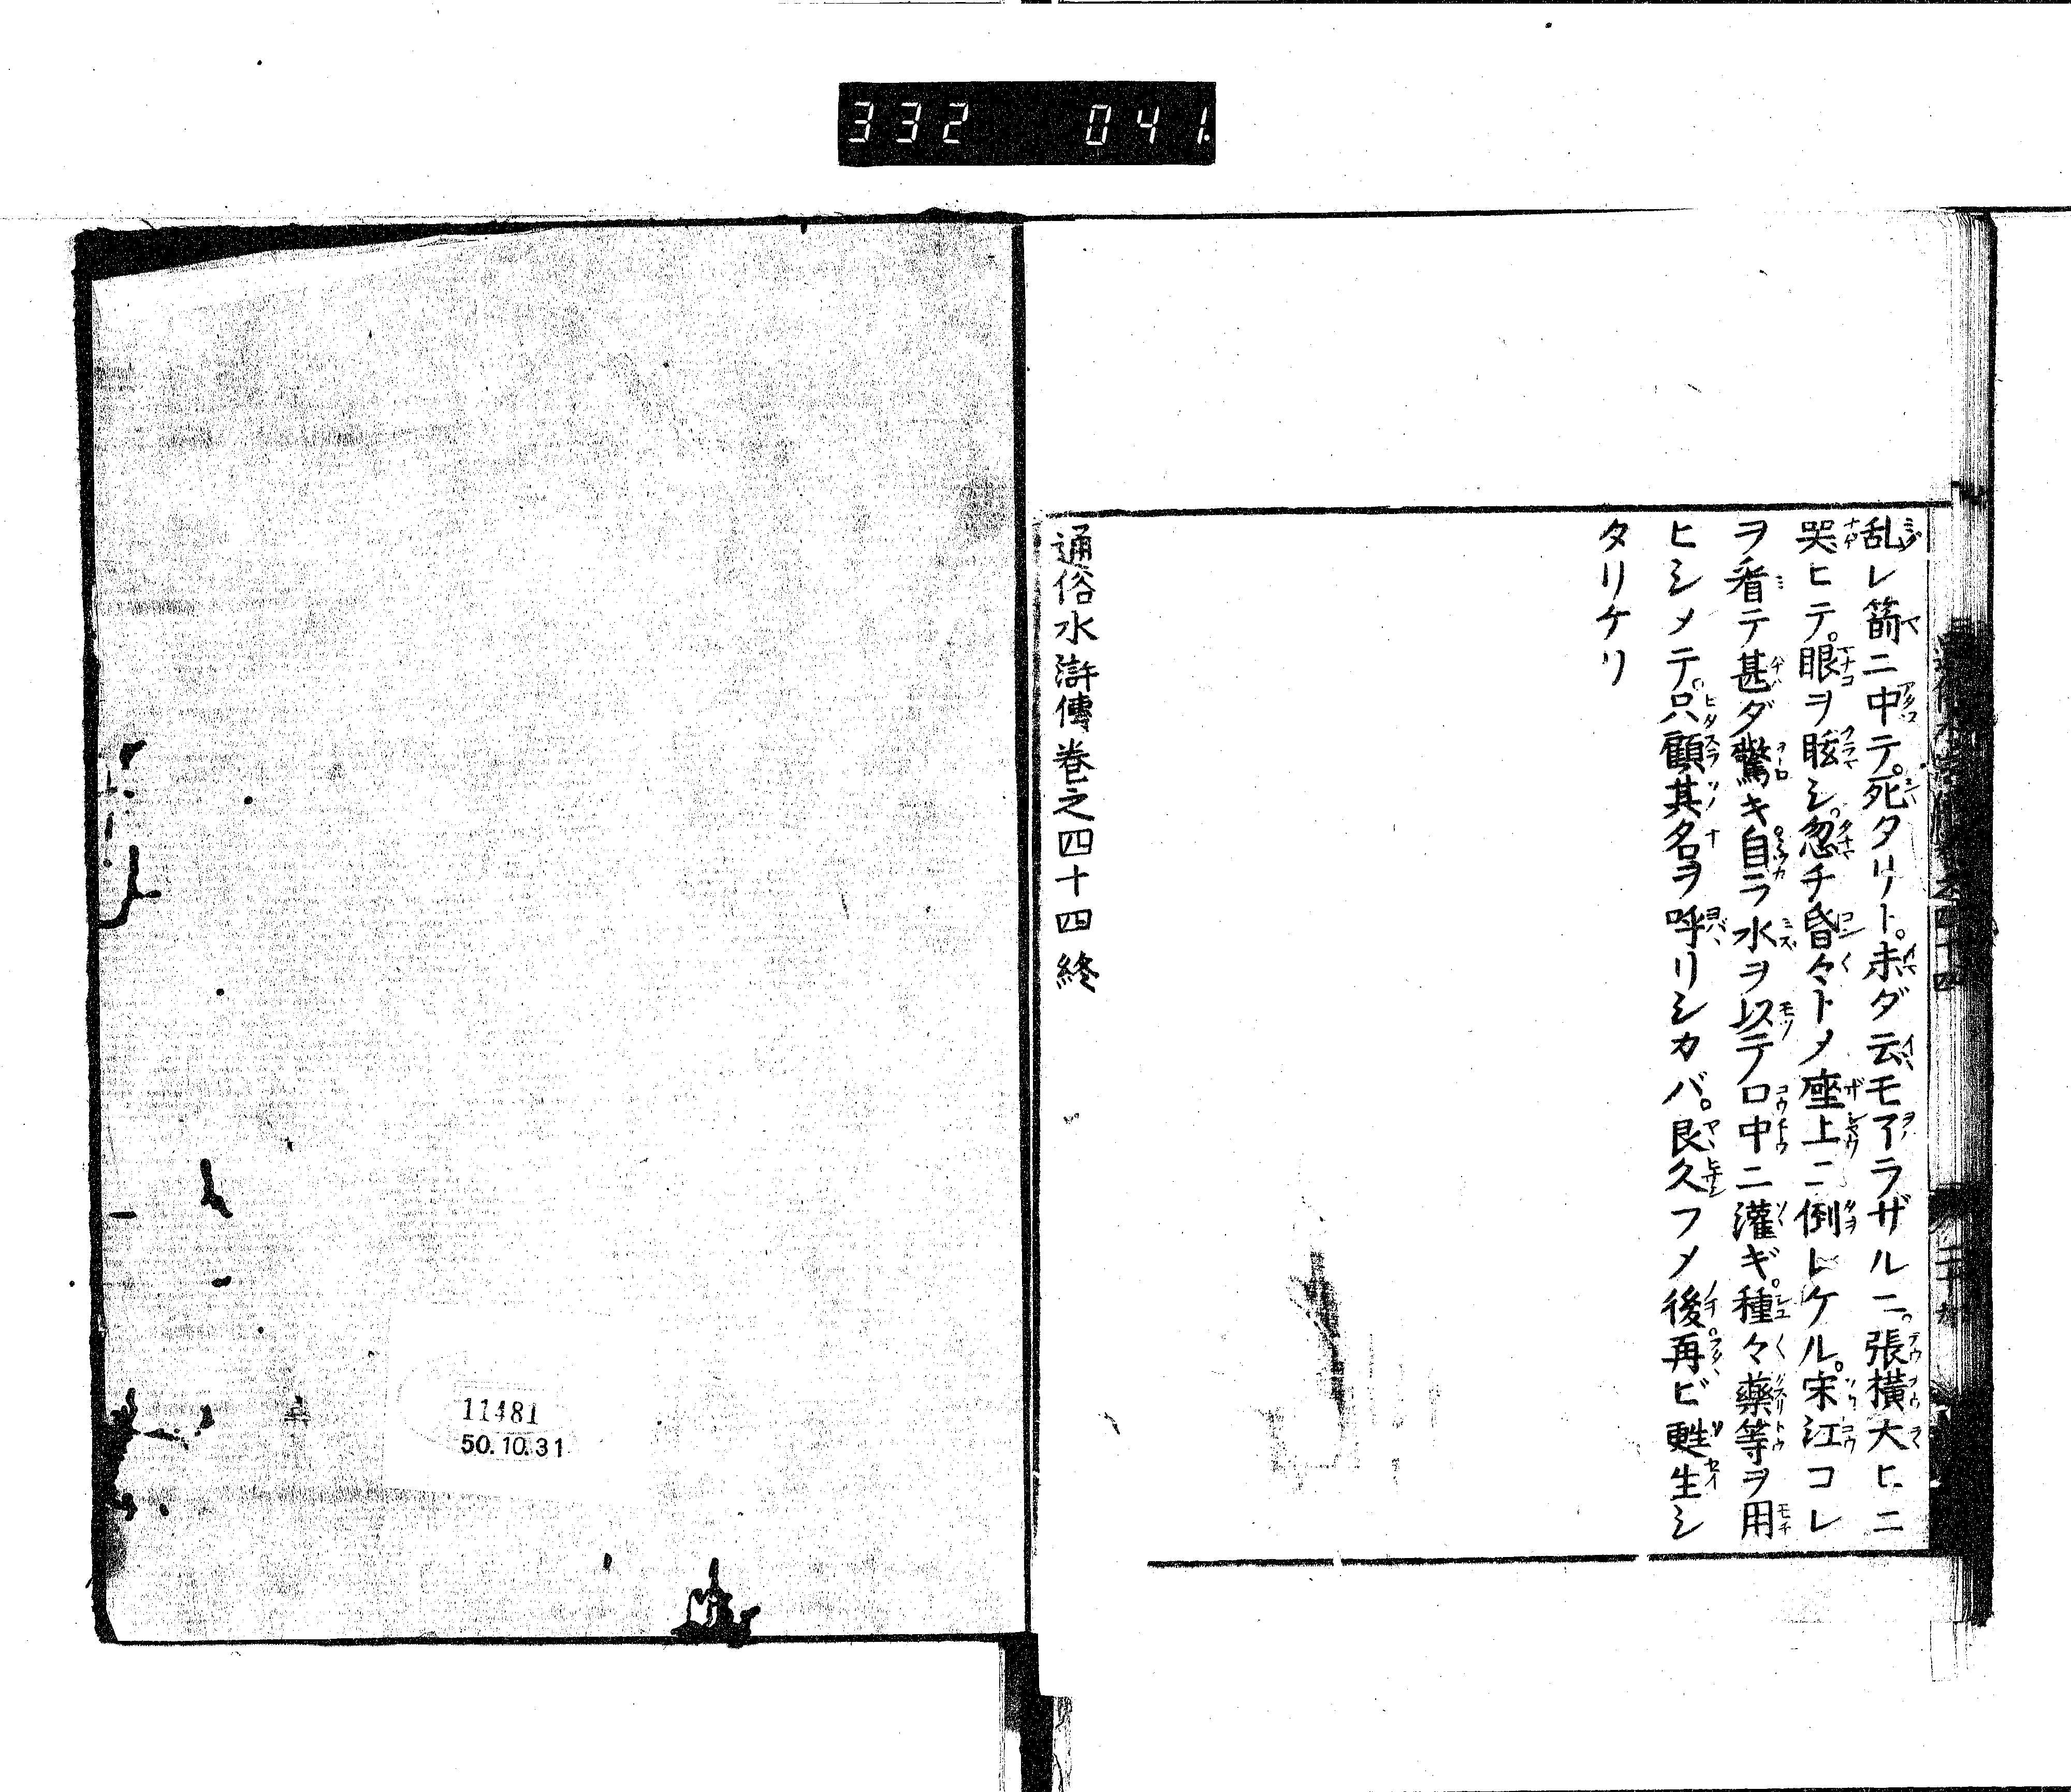 332 041.
乱レ箭ニ中テ。死タリト。未ダ云モ了ラザルニ。張横大ヒニ
哭ヒテ。眼ヲ眩シ。忽チ昏々トメ座上ニ倒レケル。宋江コレ
ヲ看テ甚ダ驚キ自ラ水ヲ以テ口中ニ灌ギ。種々藥等ヲ用
ヒシメテ。只顧其名ヲ呼リシカバ。良久フメ後再ビ甦生シ
タリケリ
通俗水滸傳卷之四十四終
11481
50.10.31